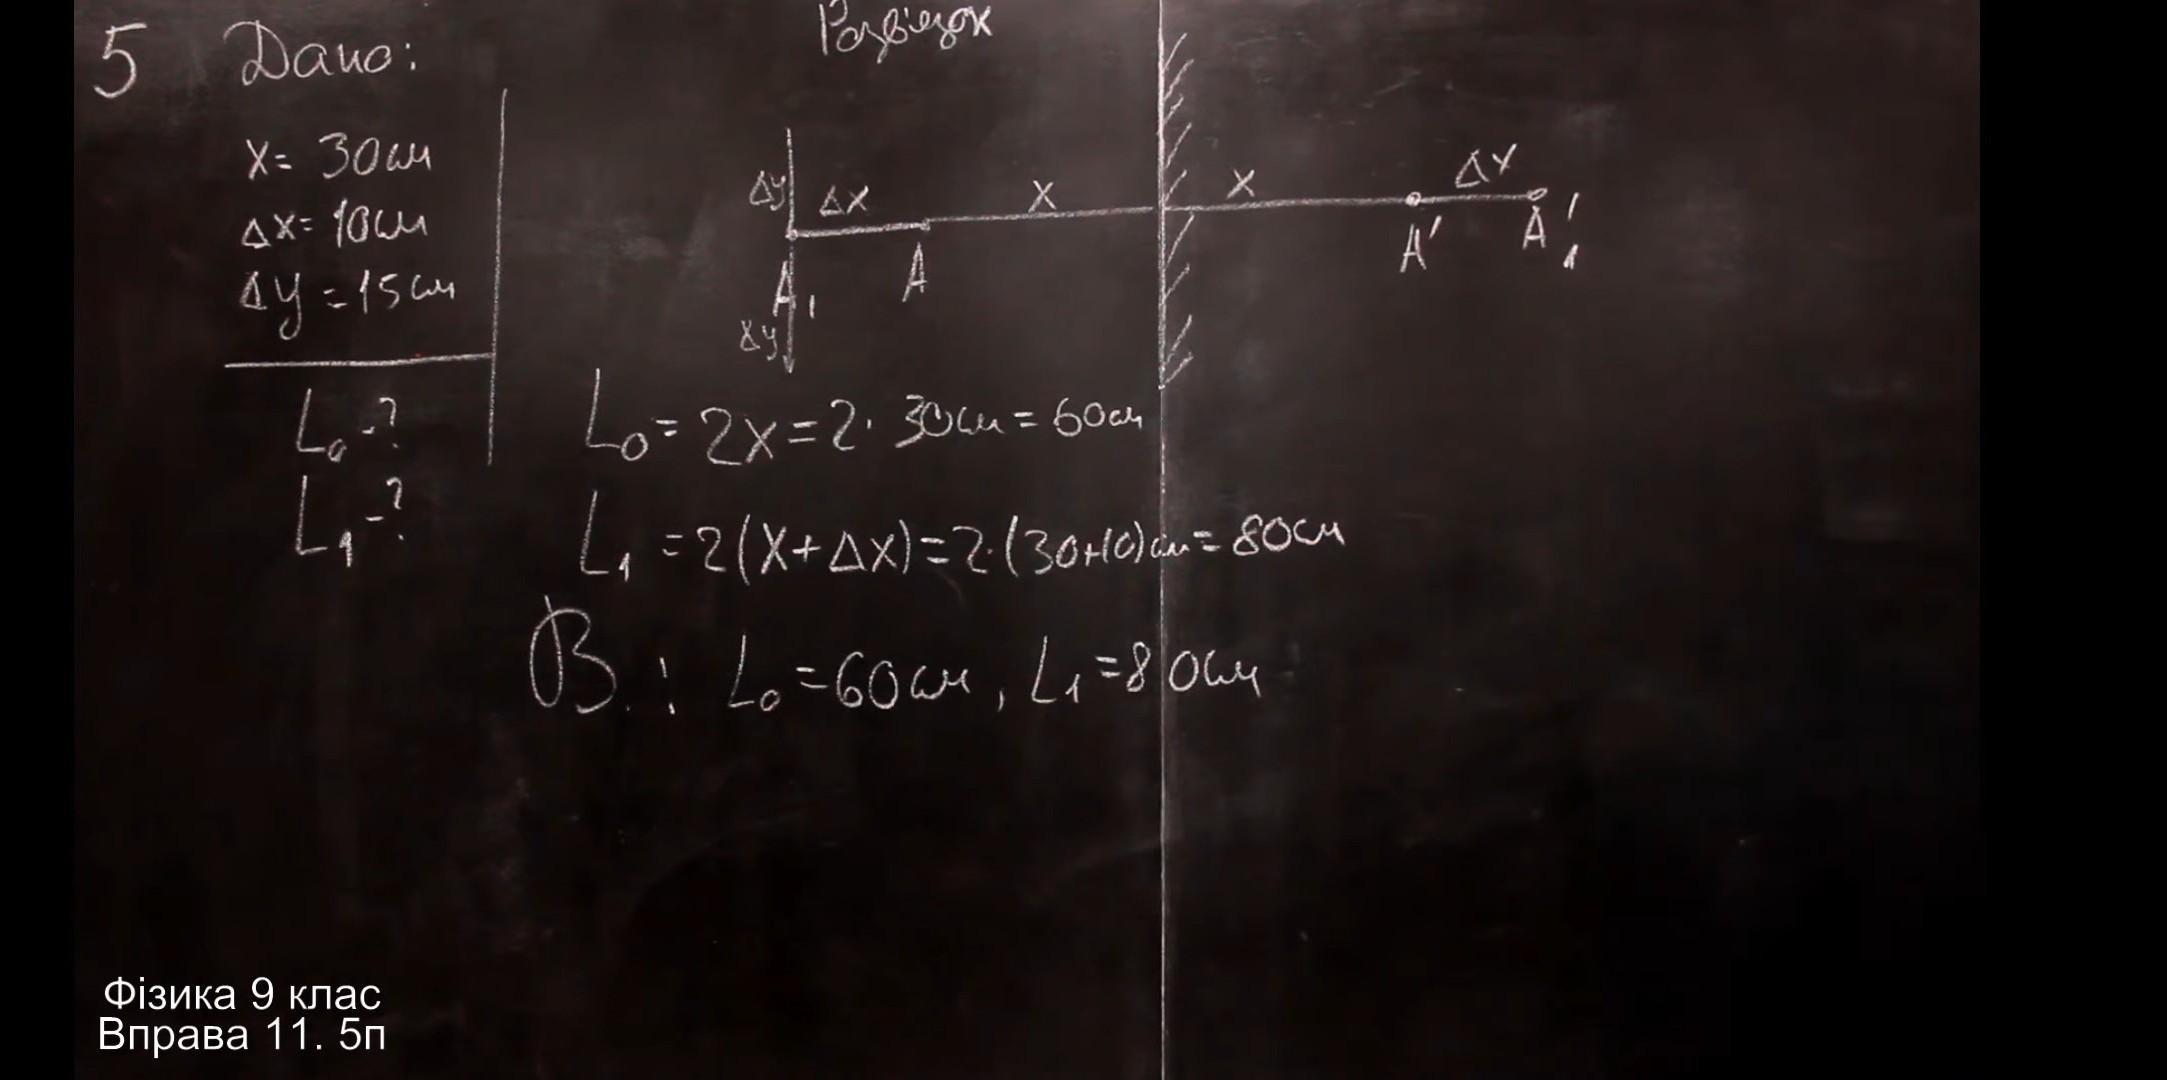 5 Дано:
x = 30 см
Δx = 10 см
Δy = 15 см
L₀ - ?
L₁ - ?
Розв'язок
Δy Δx x x Δx
A₁ A A' A₁'
Δy
L₀ = 2x = 2 · 30 см = 60 см
L₁ = 2(x + Δx) = 2 · (30+10) см = 80 см
В.: L₀ = 60 см, L₁ = 80 см
Фізика 9 клас
Вправа 11. 5п